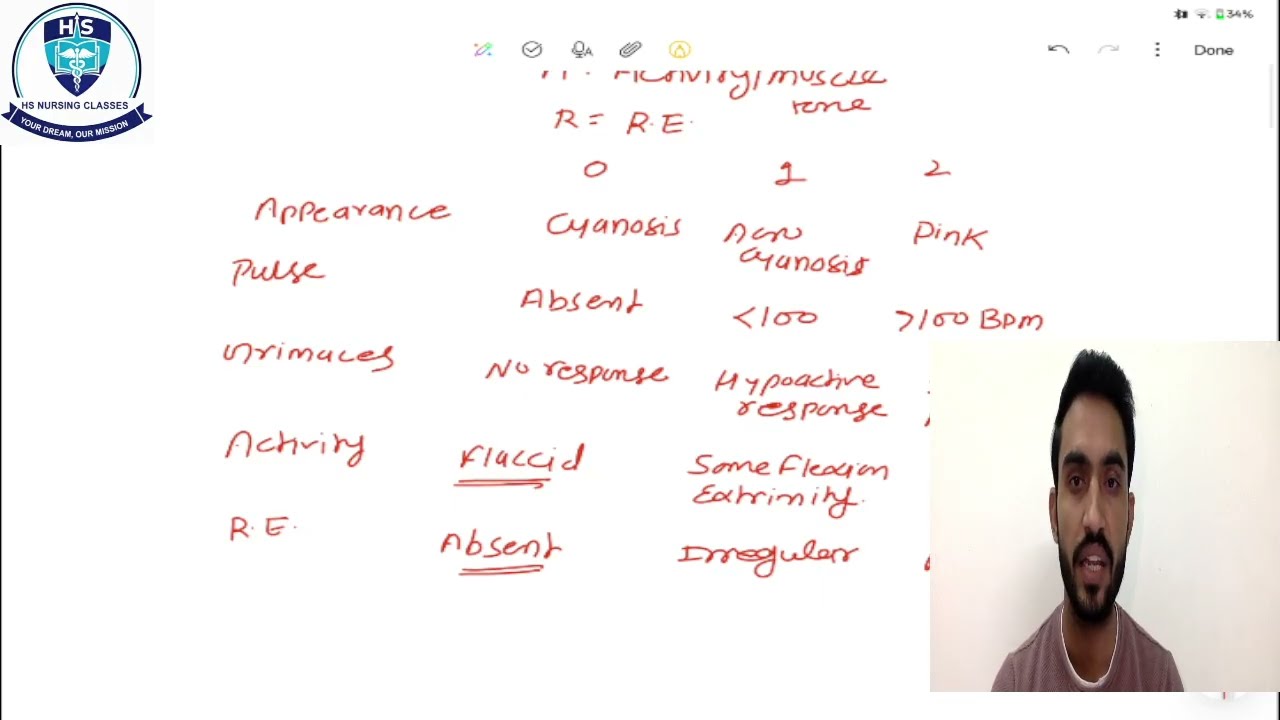 34%
HS
HS NURSING CLASSES
YOUR DREAM, OUR MISSION
Done
A: Activity/muscle
tone
R = R.E.
0 1 2
Appearance Cyanosis Acro Pink
cyanosis
Pulse Absent <100 >100 BPM
Grimaces No response Hypoactive
response
Activity Flaccid Some Flexion
Extrimity.
R.E. Absent Irregular